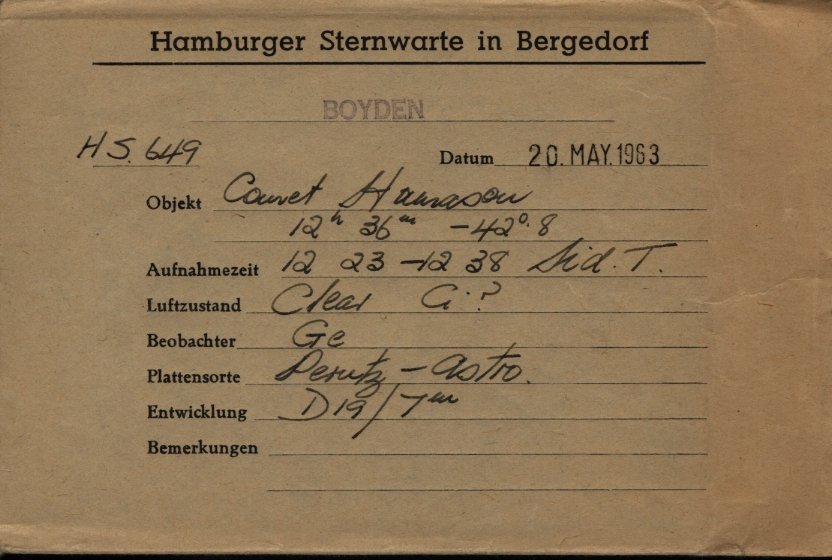 Hamburger Sternwarte in Bergedorf
BOYDEN
HS. 649
Datum 20. MAY. 1963
Objekt Comet Humason
12h 36m -42°.8
Aufnahmezeit 12 23 - 12 38 Sid. T.
Luftzustand Clear Ci?
Beobachter Ge
Plattensorte Perutz - Astro.
Entwicklung D19/7m
Bemerkungen